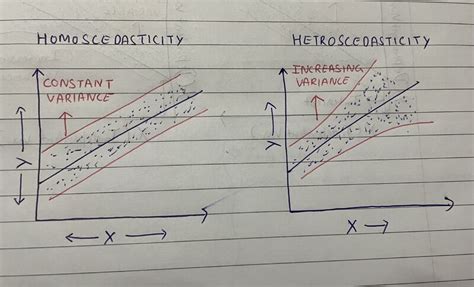 HOMOSCEDASTICITY
CONSTANT
VARIANCE
Y
X
HETROSCEDASTICITY
INCREASING
VARIANCE
Y
X